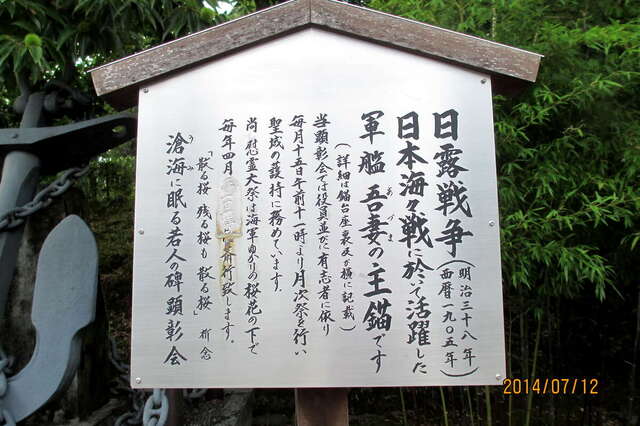 日露戦争(明治三十八年 西暦一九〇五年)
日本海々戦に於いて活躍した
軍艦 吾妻の主錨です
あづま
(詳細は錨台座裏及が横に記載)
当顕彰会では役員並びに有志者に依り
毎月十五日午前十一時より月次祭を行い
聖域の護持に務めています。
尚 慰霊大祭は海軍ゆかりの桜花の下で
毎年四月 斎行致します。
「散る桜 残る桜も 散る桜」 祈念
滄海に眠る若人の碑顕彰会
2014/07/12